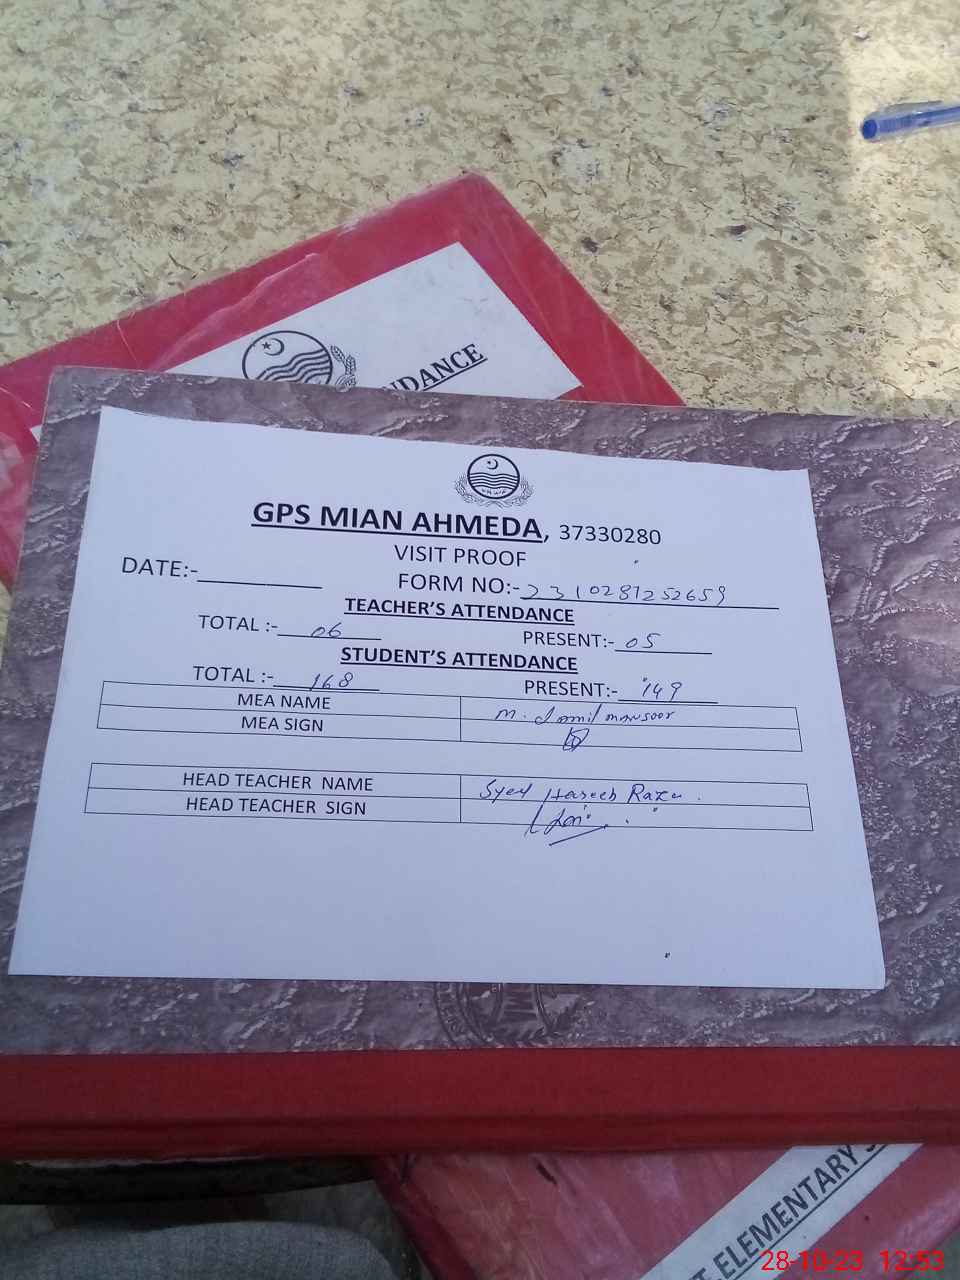 NDANCE
GPS MIAN AHMEDA, 37330280
VISIT PROOF
DATE:-
FORM NO:- 2310281252659
TEACHER'S ATTENDANCE
TOTAL :- 06 PRESENT:- 05
STUDENT'S ATTENDANCE
TOTAL :- 168 PRESENT:- 149
MEA NAME M. Jamil mansoor
MEA SIGN
HEAD TEACHER NAME Syed Haseeb Raza
HEAD TEACHER SIGN
T ELEMENTARY S
28-10-23 12:53